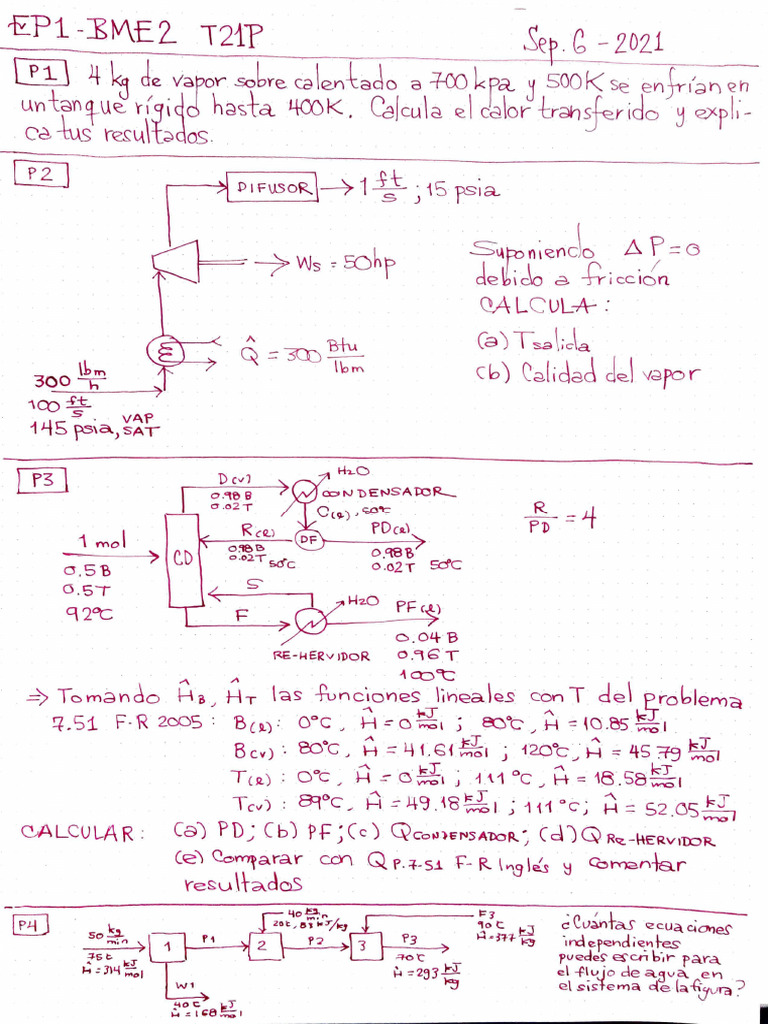 EP1-BME2 T21P
Sep. 6-2021
P1 4 kg de vapor sobre calentado a 700 kpa y 500K se enfrían en
un tanque rígido hasta 400K. Calcula el calor transferido y expli-
ca tus resultados.
P2
DIFUSOR → 1 ft/s ; 15 psia
→ Ws = 50hp
Suponiendo ΔP=0
debido a fricción
CALCULA:
(a) Tsalida
(b) Calidad del vapor
ε
Q̂ = 300 Btu/lbm
300 lbm/h
100 ft/s
145 psia, VAP SAT
P3
D(v)
0.98 B
0.02 T
H2O
CONDENSADOR
C(l), 50℃
R/PD = 4
1 mol
0.5B
0.5T
92℃
CD
R(l)
0.98B
0.02T 50℃
DF
PD(l)
0.98B
0.02T 50℃
S
F
H2O
PF(l)
0.04B
0.96T
100℃
RE-HERVIDOR
⇒ Tomando ĤB, ĤT las funciones lineales con T del problema
7.51 F-R 2005: B(l): 0℃, Ĥ=0 kJ/mol ; 80℃, Ĥ=10.85 kJ/mol
B(v): 80℃, Ĥ=41.61 kJ/mol ; 120℃, Ĥ=45.79 kJ/mol
T(l): 0℃, Ĥ=0 kJ/mol ; 111℃, Ĥ=18.58 kJ/mol
T(v): 89℃, Ĥ=49.18 kJ/mol ; 111℃; Ĥ=52.05 kJ/mol
CALCULAR: (a) PD; (b) PF; (c) QCONDENSADOR; (d) QRE-HERVIDOR
(e) Comparar con Q P.7-51 F-R Inglés y comentar
resultados
P4
50 kg/min
75℃
Ĥ=314 kJ/mol
1
P1
W1
40℃
Ĥ=168 kJ/mol
40 kg/min
20℃, 83 kJ/kg
2
P2
3
F3
90℃
Ĥ=377 kJ/kg
P3
70℃
Ĥ=293 kJ/kg
¿Cuántas ecuaciones
independientes
puedes escribir para
el flujo de agua en
el sistema de la figura?